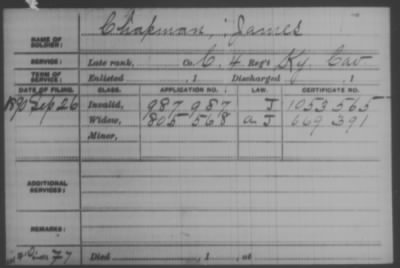 NAME OF SOLDIER: Chapman, James
SERVICE: Late rank, Co. C. 4 Reg't Ky. Cav
TERM OF SERVICE: Enlisted , 1 Discharged , 1
DATE OF FILING. CLASS. APPLICATION NO. LAW. CERTIFICATE NO.
1890 Sep 26 Invalid, 987 987 J 1053 565
Widow, 805 568 a. J 669 391
Minor,
ADDITIONAL SERVICES:
REMARKS:
77 Died , 1 , at